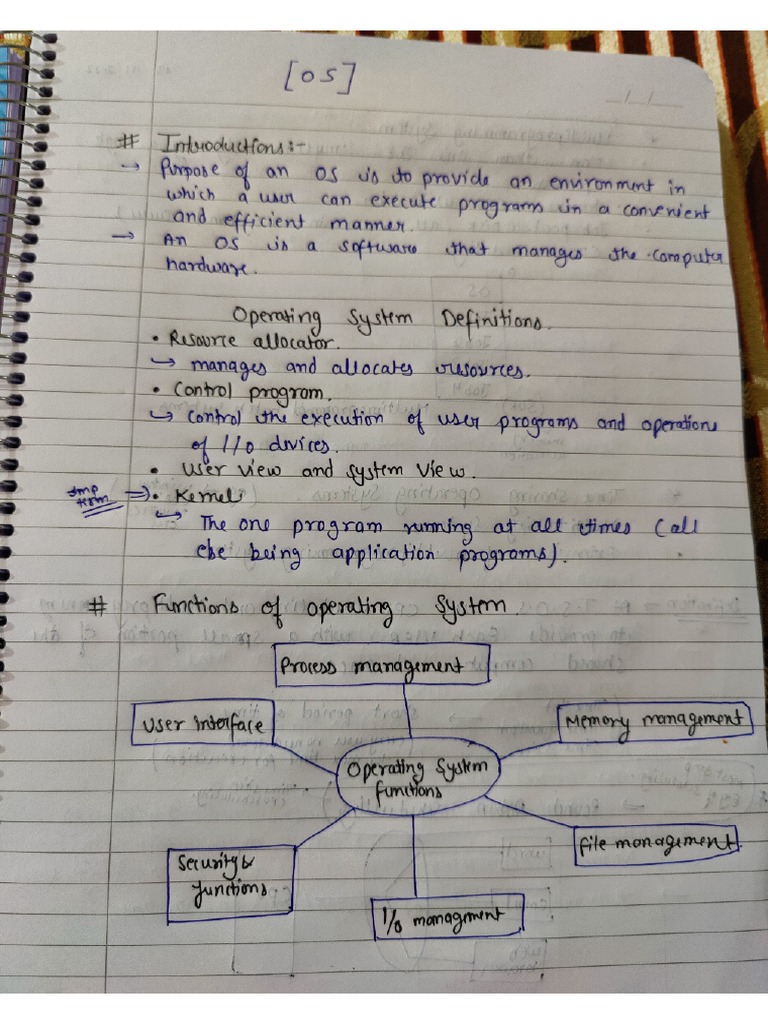 [OS]
# Introductions:-
→ Purpose of an OS is to provide an environment in
which a user can execute programs in a convenient
and efficient manner.
→ An OS is a software that manages the computer
hardware.
Operating System Definitions.
• Resource allocator.
↪ manages and allocates resources.
• Control program.
↪ Control the execution of user programs and operations
of I/O devices.
• User view and system view.
Imp term ⇒ • Kernel
↪ The one program running at all times (all
else being application programs).
# Functions of operating system.
Process management
User interface
Memory management
Operating System
functions
File management
Security &
functions.
I/o management